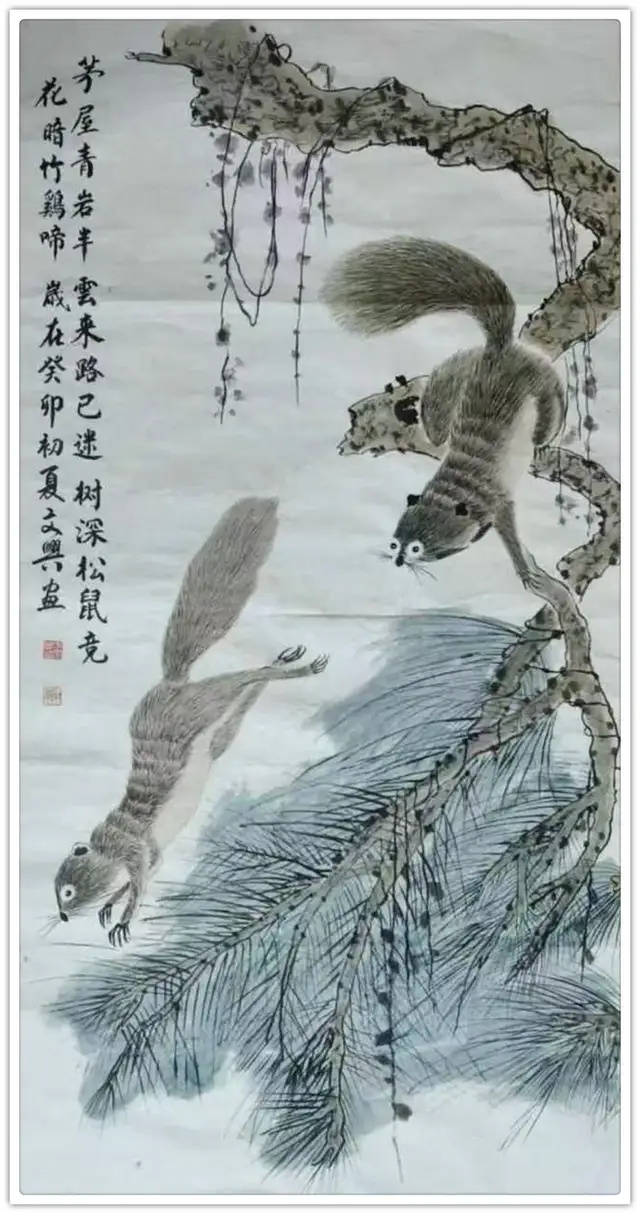 茅屋青岩半雲来路已迷树深松鼠竞
花暗竹鷄啼 歲在癸卯初夏文興画